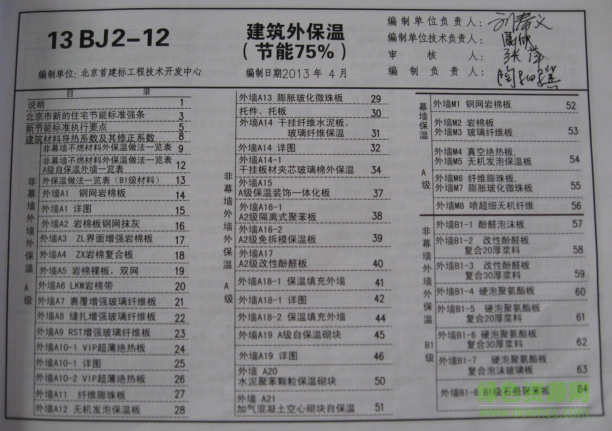 13 BJ2-12
编制单位：北京首建标工程技术开发中心
建筑外保温
(节能75%)
编制日期2013 年 4月
编制单位负责人：
编制单位技术负责人：
审 核 人：
编 制 负 责 人：
目 录
说明 1
北京市新的住宅节能标准强条 3
新节能标准执行要点 5
建筑材料导热系数及其修正系数 8
非幕墙不燃材料外保温做法一览表 9
非幕墙不燃材料外保温做法一览表
A级自保温外墙一览表 12
外保温做法一览表(B1级材料) 13
非幕墙外墙外保温 A级
外墙A1 钢网岩棉板 14
外墙A1 详图 15
外墙A2 岩棉板钢网抹灰 16
外墙A3 ZL界面增强岩棉板 17
外墙A4 ZX岩棉复合板 18
外墙A5 岩棉裸板，双网 19
外墙A6 LKW岩棉带 20
外墙A7 裹覆增强玻璃纤维板 21
外墙A8 缝扎增强玻璃纤维板 22
外墙A9 RST增强玻璃纤维板 23
外墙A10-1 VIP超薄绝热板 24
外墙A10-1 详图 25
外墙A10-2 VIP超薄绝热板 26
外墙A11 纤维膨珠板 27
外墙A12 无机发泡保温板 28
非幕墙外墙外保温 A级
外墙A13 膨胀玻化微珠板 29
托件、托板 30
外墙A14 干挂纤维水泥板，
玻璃纤维保温 31
外墙A14 详图 32
外墙A14-1
干挂板材夹芯玻璃棉外保温 34
外墙A15
A级保温装饰一体化板 37
外墙A16-1
A2级隔离式聚苯板 38
外墙A16-2
A2级免拆模保温板 39
外墙A17
A2级改性酚醛板 40
外墙A18-1 保温填充外墙 41
外墙A18-1 详图 42
外墙A18-2 保温填充外墙 44
外墙A19 A级自保温砌块 45
外墙A19 详图 46
外墙 A20
水泥聚苯颗粒保温砌块 50
外墙 A21
加气混凝土空心砌块自保温 51
幕墙保温 A级
外墙M1 钢网岩棉板 52
外墙M2 岩棉板
外墙M3 玻璃纤维板 53
外墙M4 真空绝热板，
外墙M5 无机发泡保温板 54
外墙M6 纤维膨珠板，
外墙M7 膨胀玻化微珠板 55
外墙M8 喷超细无机纤维 56
非幕墙外墙外保温 B1级
外墙B1-1 酚醛泡沫板 57
外墙B1-2 改性酚醛板
复合20厚浆料 58
外墙B1-3 改性酚醛板
复合30厚浆料 59
外墙B1-4 硬泡聚氨酯板 60
外墙B1-5 硬泡聚氨酯板
复合20厚浆料 61
外墙B1-6 硬泡聚氨酯板
复合30厚浆料 62
外墙B1-7 硬泡聚氨酯板
复合泡沫玻璃板 63
外墙B1-8 B1级石墨聚苯板 64